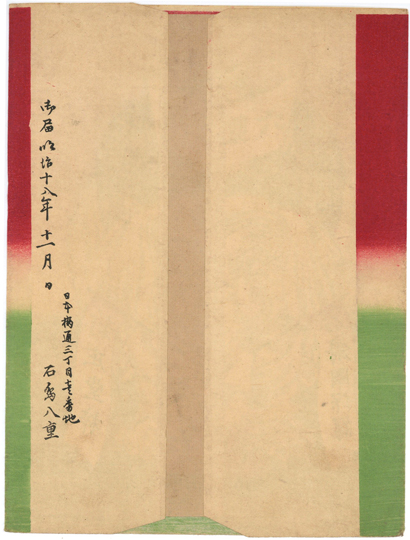 御届明治十八年十一月 日
日本橋通三丁目壱番地
石島八重